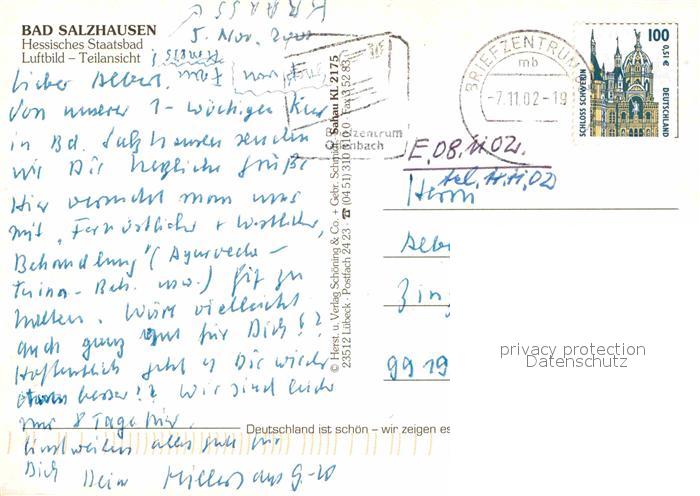 BAD SALZHAUSEN
Hessisches Staatsbad
Luftbild – Teilansicht
5. Nov.
Lieber Albert,
Von unserer 1-wöchigen Kur
in Bd. Salzhausen senden
wir Dir herzliche Grüße
Hier versucht man uns
mit "Fernöstlicher + Westlicher
Behandlung" (Ayurveda –
usw.) fit zu
halten. Wäre vielleicht
auch ganz gut für Dich!?
Hoffentlich geht es Dir wieder
etwas besser?? Wir sind leider
nur 8 Tage hier.
Einstweilen alles gute für
Dich Dein
© Herst. u. Verlag Schöning & Co. + Gebr. Schmidt
23512 Lübeck · Postfach 24 23 · ☎ (04 51) 3 10
Sanau Kl. 2175
BRIEFZENTRUM
mb
-7.11.02-19
Briefzentrum
100
0,51 €
DEUTSCHLAND
SCHLOSS SCHWERIN
E. 08.11.02.
tel. 11.11.02
Herrn
Albe
Zin
99 19
privacy protection
Datenschutz
Deutschland ist schön – wir zeigen es